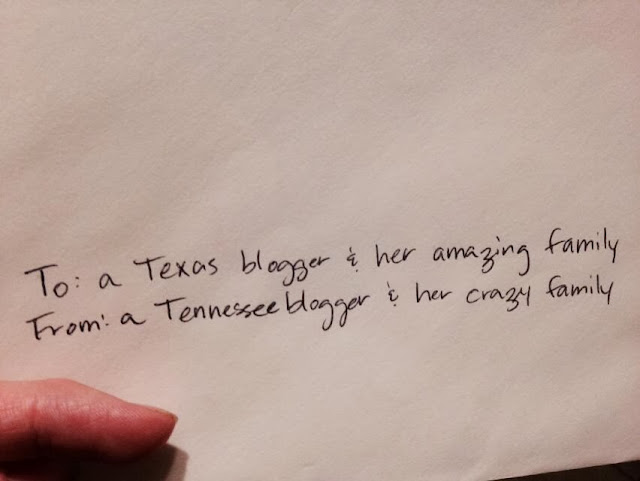 To: a Texas blogger & her amazing family
From: a Tennessee blogger & her crazy family